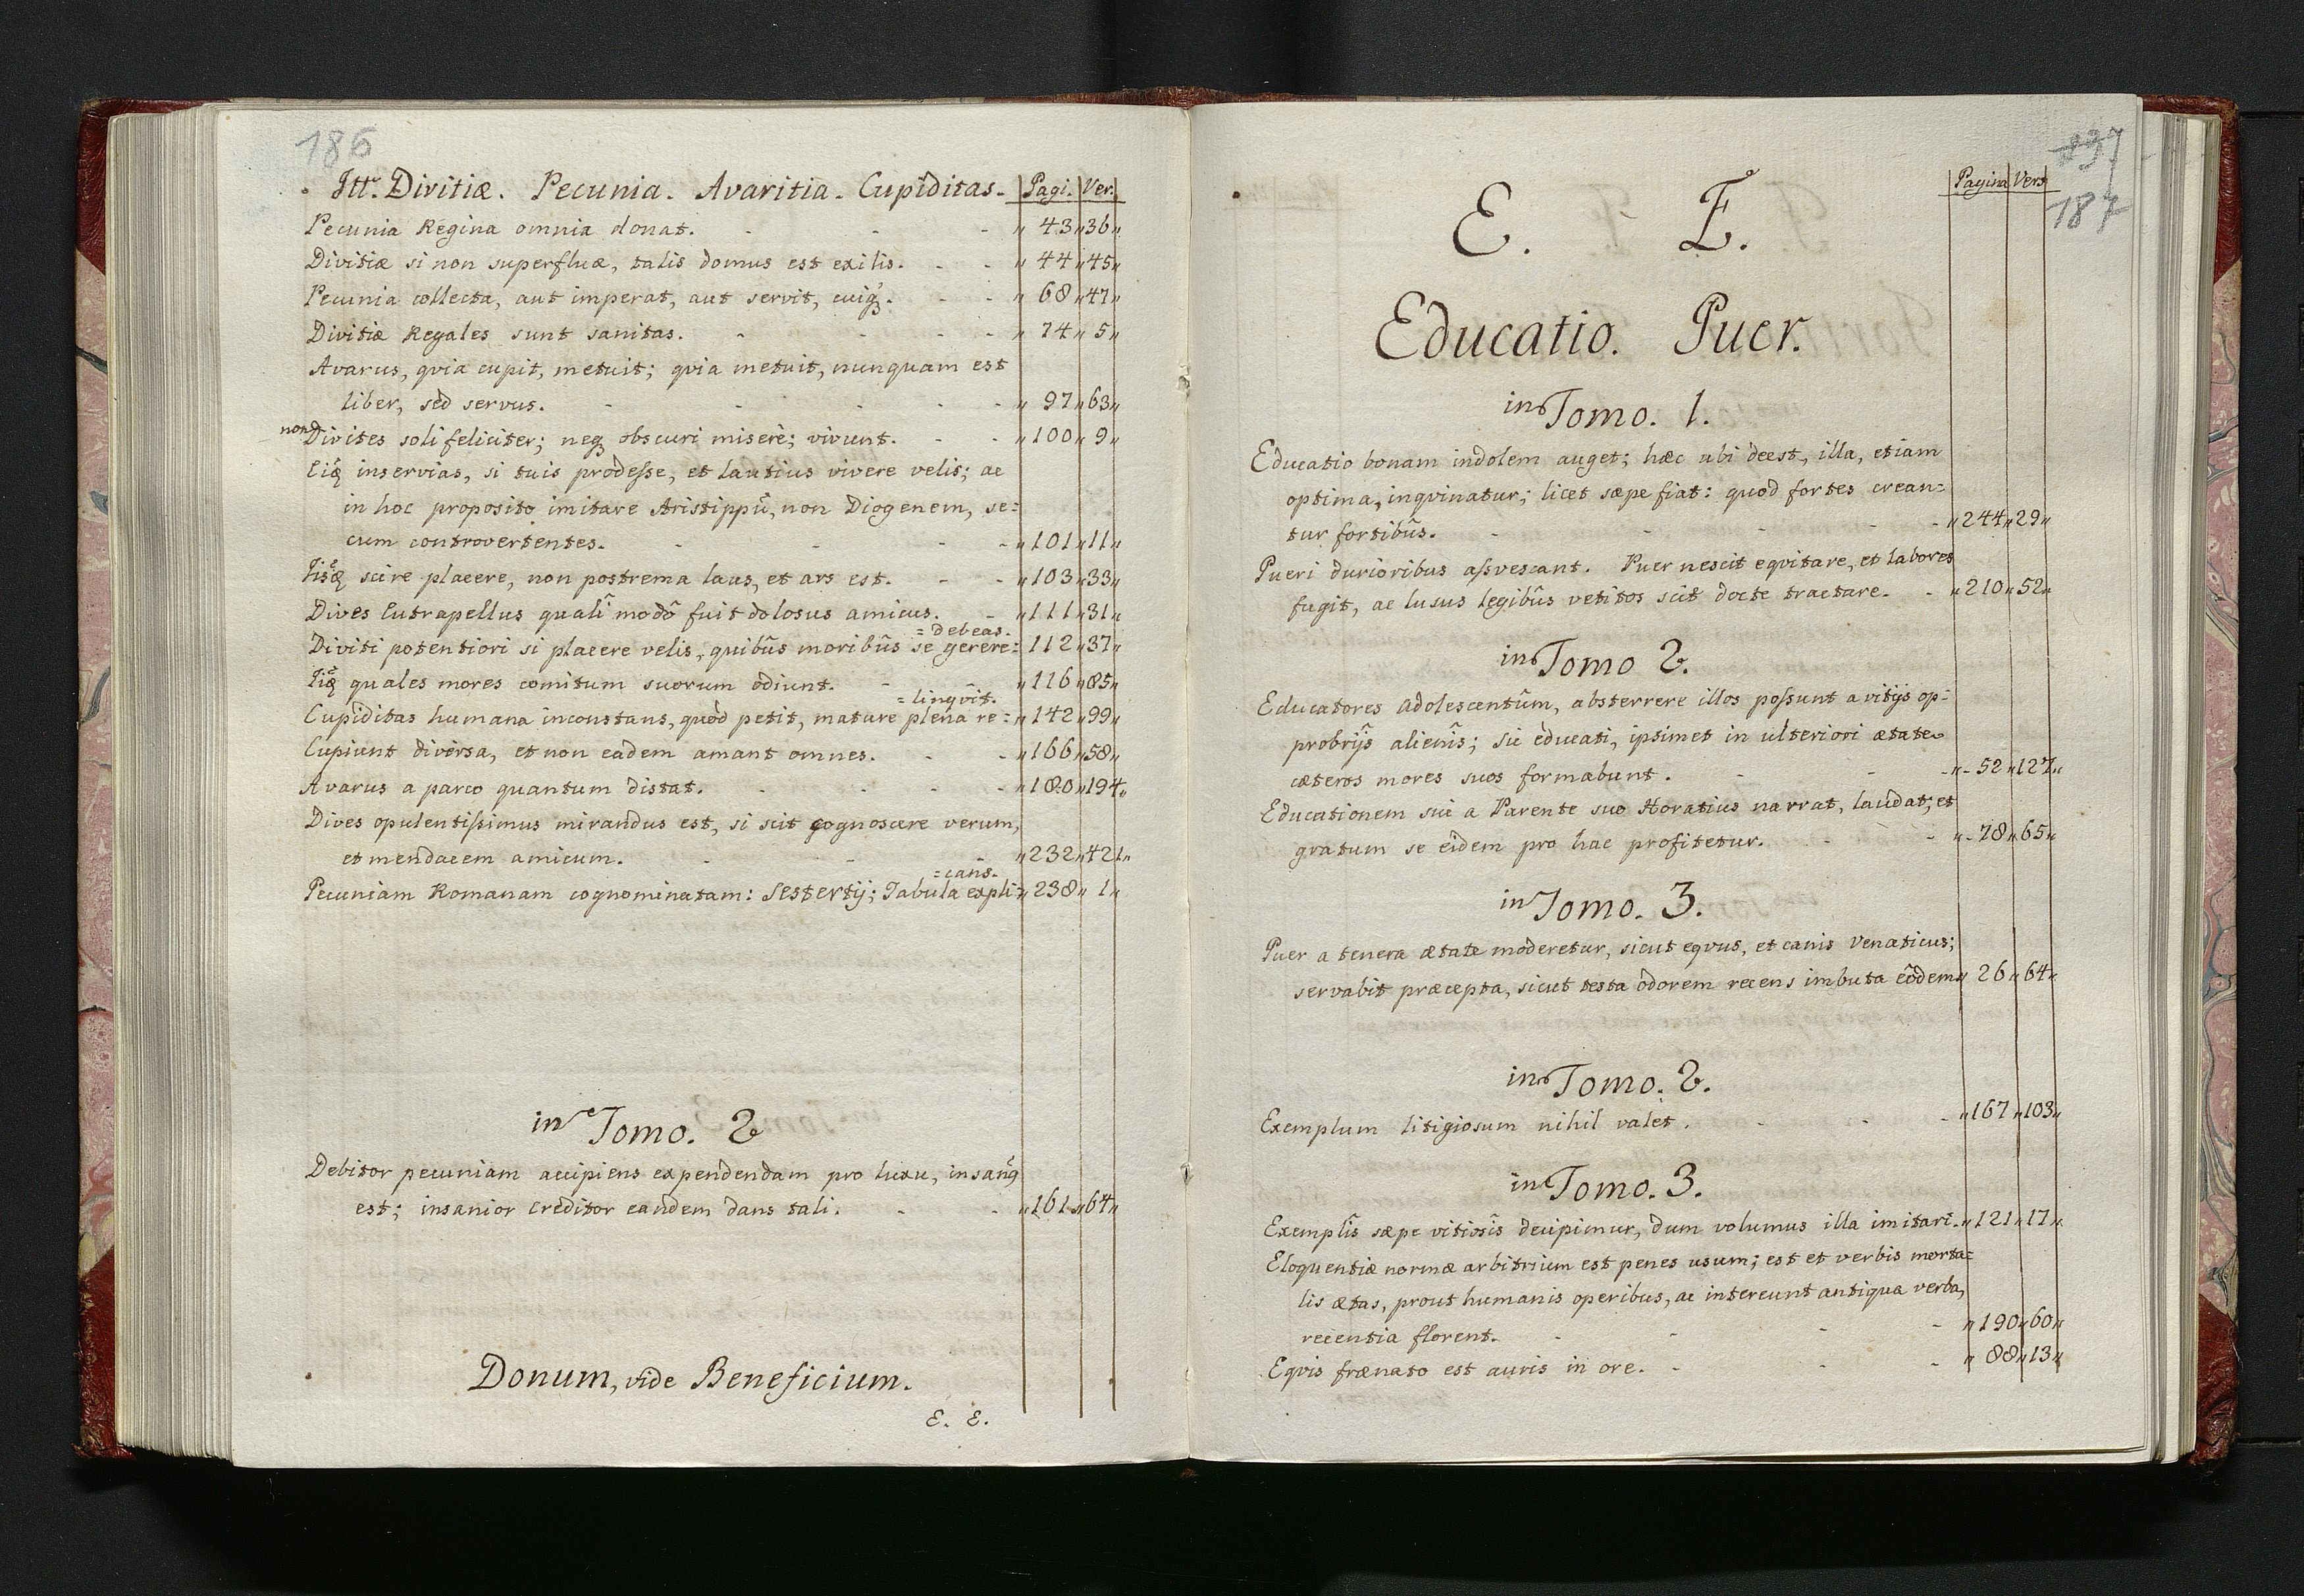 186
Itt. Divitiæ. Pecunia. Avaritia. Cupiditas. Pagi. Ver.
Pecunia Regina omnia donat. - - - „ 43 „ 36 „
Divitiæ si non superfluæ, talis domus est exilis. - - „ 44 „ 45 „
Pecunia collecta, aut imperat, aut servit, cuiq̧. - - „ 68 „ 47 „
Divitiæ Regales sunt sanitas. - - - - „ 74 „ 5 „
Avarus, qvia cupit, metuit; qvia metuit, nunquam est
liber, sed servus. - - - - - „ 97 „ 63 „
non Divites soli feliciter; neq̧ obscuri miserè; vivunt. - - „ 100 „ 9 „
inservias, si tuis prodeſse, et lautius vivere velis; ac
in hoc proposito imitare Aristippū, non Diogenem, se=
cum controvertentes. - - - - „ 101 „ 11 „
scire placere, non postrema laus, et ars est. - - „ 103 „ 33 „
Dives Eutrapellus quali modô fuit dolosus amicus. - „ 111 „ 31 „
= debeas.
Diviti potentiori si placere velis, quibûs moribûs se gerere: 112 „ 37 „
quales mores comitum suorum odiunt. - „ 116 „ 85 „
= linqvit.
Cupiditas humana inconstans, quòd petit, mature plena re = „ 142 „ 99 „
Cupiunt diversa, et non eadem amant omnes. - - „ 166 „ 58 „
Avarus a parco quantum distat. - - - - „ 180 „ 194 „
Dives opulentiſsimus mirandus est, si scit cognoscere verum,
et mendacem amicum. - - - „ 232 „ 421 „
= cans.
Pecuniam Romanam cognominatam: Sestertij; Tabula expli = „ 238 „ 1 „
in Tomo. 2
Debitor pecuniam accipiens expendendam pro luxu, insanq
est; insanior Creditor eandem dans tali. - - „ 161 „ 64 „
Donum, vide Beneficium.
E. E.
197
187
Pagina Vers
E. E.
Educatio. Puer.
in Tomo. 1.
Educatio bonam indolem auget; hæc ubi deest, illa, etiam
optima, inqvinatur; licet sæpe fiat: quod fortes crean=
tur fortibûs. - - - - „ 244 „ 29 „
Pueri durioribus aſsvescant. Puer nescit eqvitare, et labores
fugit, ac lusus legibûs vetitos scit docte tractare. - „ 210 „ 52 „
in Tomo 2.
Educatores Adolescentûm, absterrere illos poſsunt a vitijs op=
probrijs alienîs; sic educati, ipsimet in ulteriori ætate
cæteros mores suos formabunt. - - - „ - 52 „ 127 „
Educationem sui a Parente suo Horatius narrat, laudat, et
gratum se eidem pro hac profitetur. - - „ - 78 „ 65 „
in Tomo. 3.
Puer a tenera ætate moderetur, sicut eqvus, et canis venaticus;
servabit præcepta, sicut testa odorem recens imbuta eôdem „ 26 „ 64 „
in Tomo. 2.
Exemplum litigiosum nihil valet. - - - „ 167 „ 103 „
in Tomo. 3.
Exemplîs sæpe vitiosîs decipimur, dum volumus illa imitari. „ 121 „ 17 „
Eloquentiæ normæ arbitrium est penes usum; est et verbis morta=
lis ætas, prout humanis operibus, ac intereunt antiqua verba,
recentia florent. - - - - „ 190 „ 60 „
Eqvis frænato est auris in ore. - - - „ 88 „ 13 „